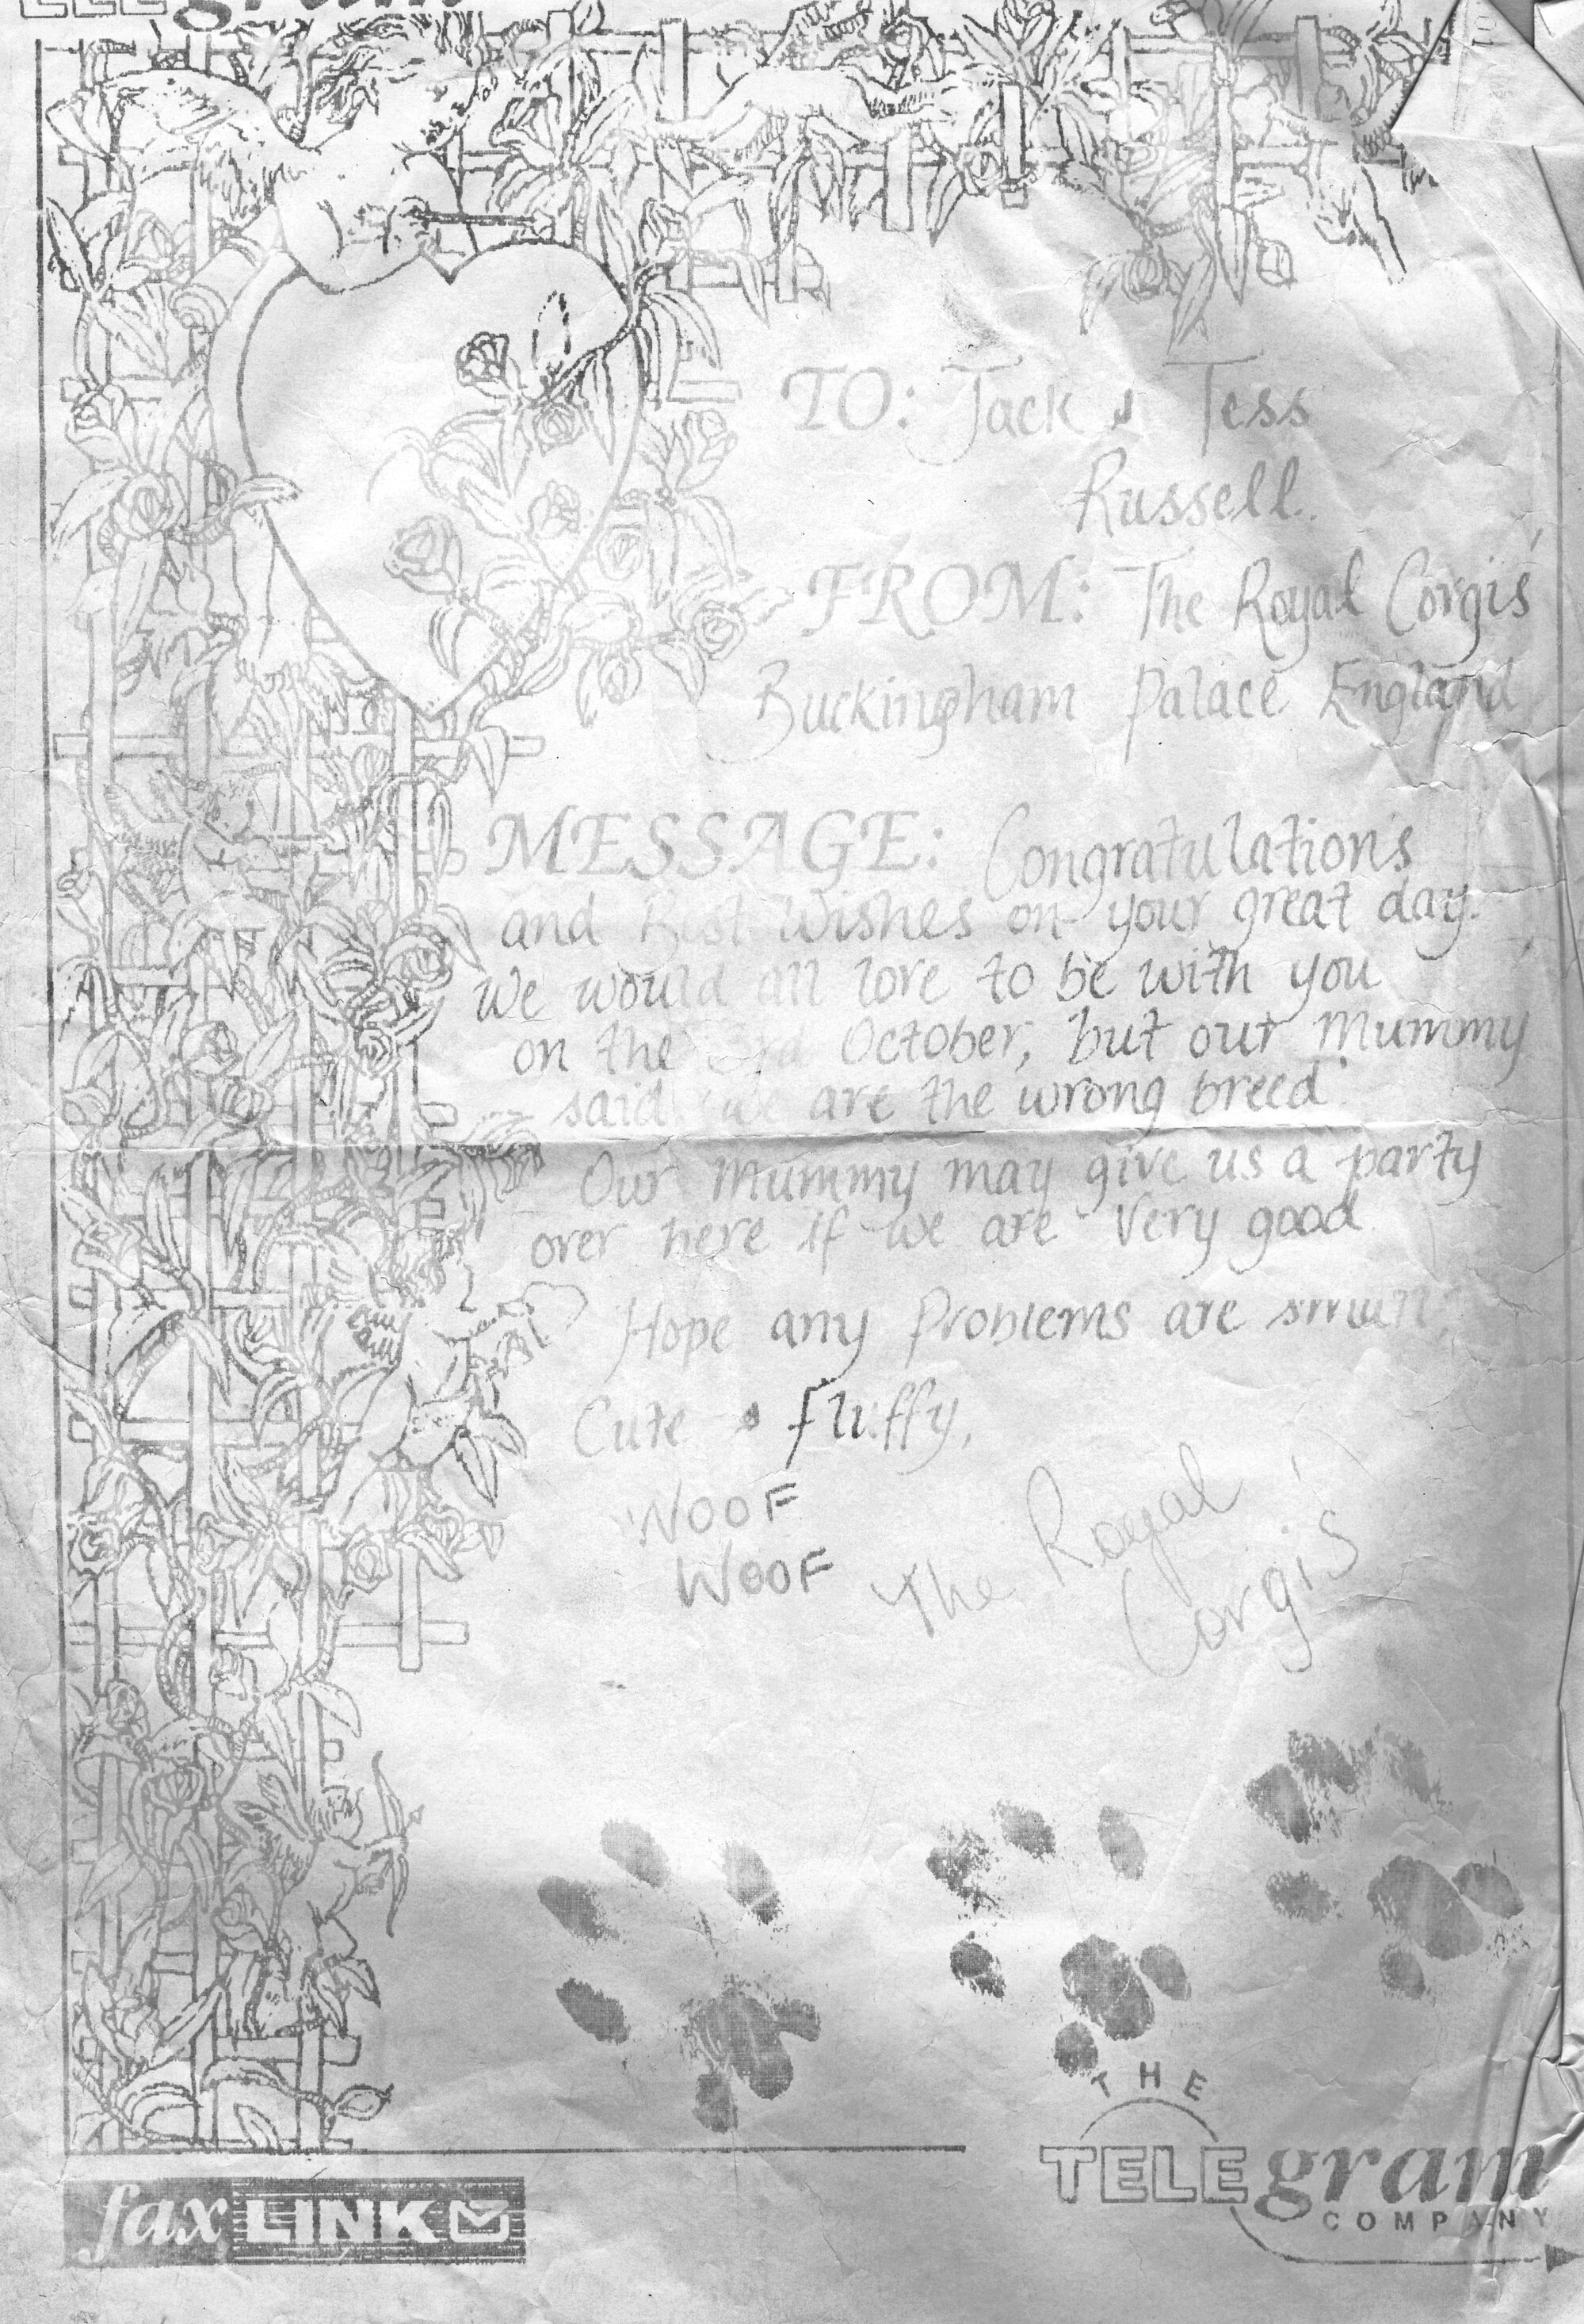 TELEgram
TO: Jack & Tess
Russell.
FROM: The Royal Corgis'
Buckingham Palace England
MESSAGE: Congratulations
and Best Wishes on your great day.
We would all love to be with you
on the 3rd October, but our Mummy
said we are the wrong breed.
Our Mummy may give us a party
over here if we are very good
Hope any Problems are small,
Cute & fluffy,
WOOF
WOOF
The Royal
Corgi's
THE
TELEgram
COMPANY
fax LINK